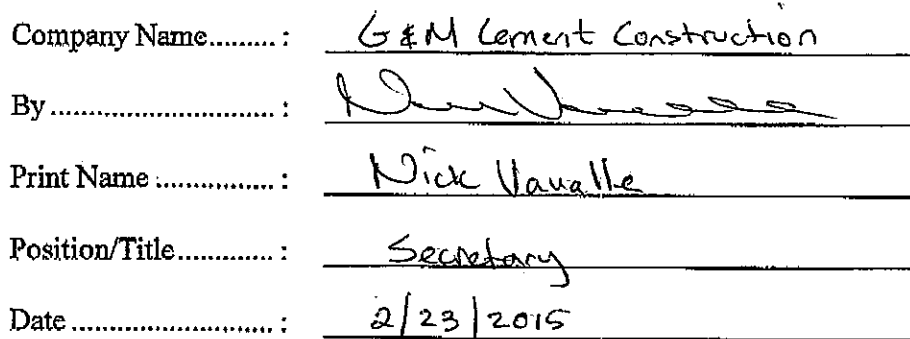 Company Name.........: G & M Cement Construction
By............................:
Print Name...............: Nick Vavalle
Position/Title............: Secretary
Date.........................: 2/23/2015